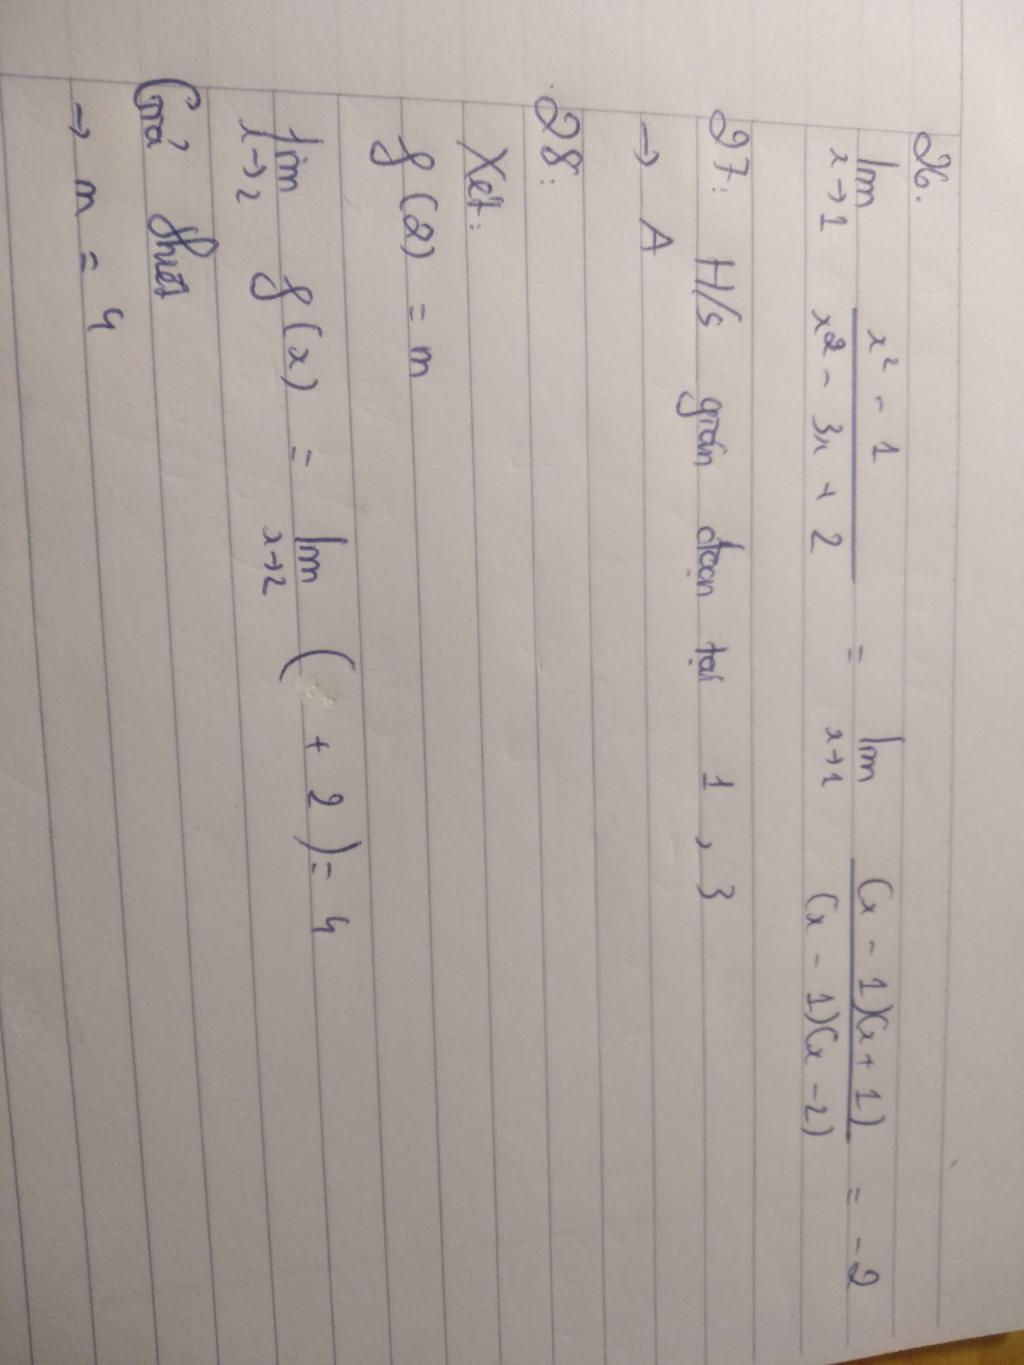 26.
lim x→1 x² - 1 / x² - 3x + 2 = lim x→1 (x - 1)(x + 1) / (x - 1)(x - 2) = -2
27: H/s gián đoạn tại 1, 3
→ A
28:
Xét:
f(2) = m
lim x→2 f(x) = lim x→2 ( + 2) = 4
Giả thiết
→ m = 4